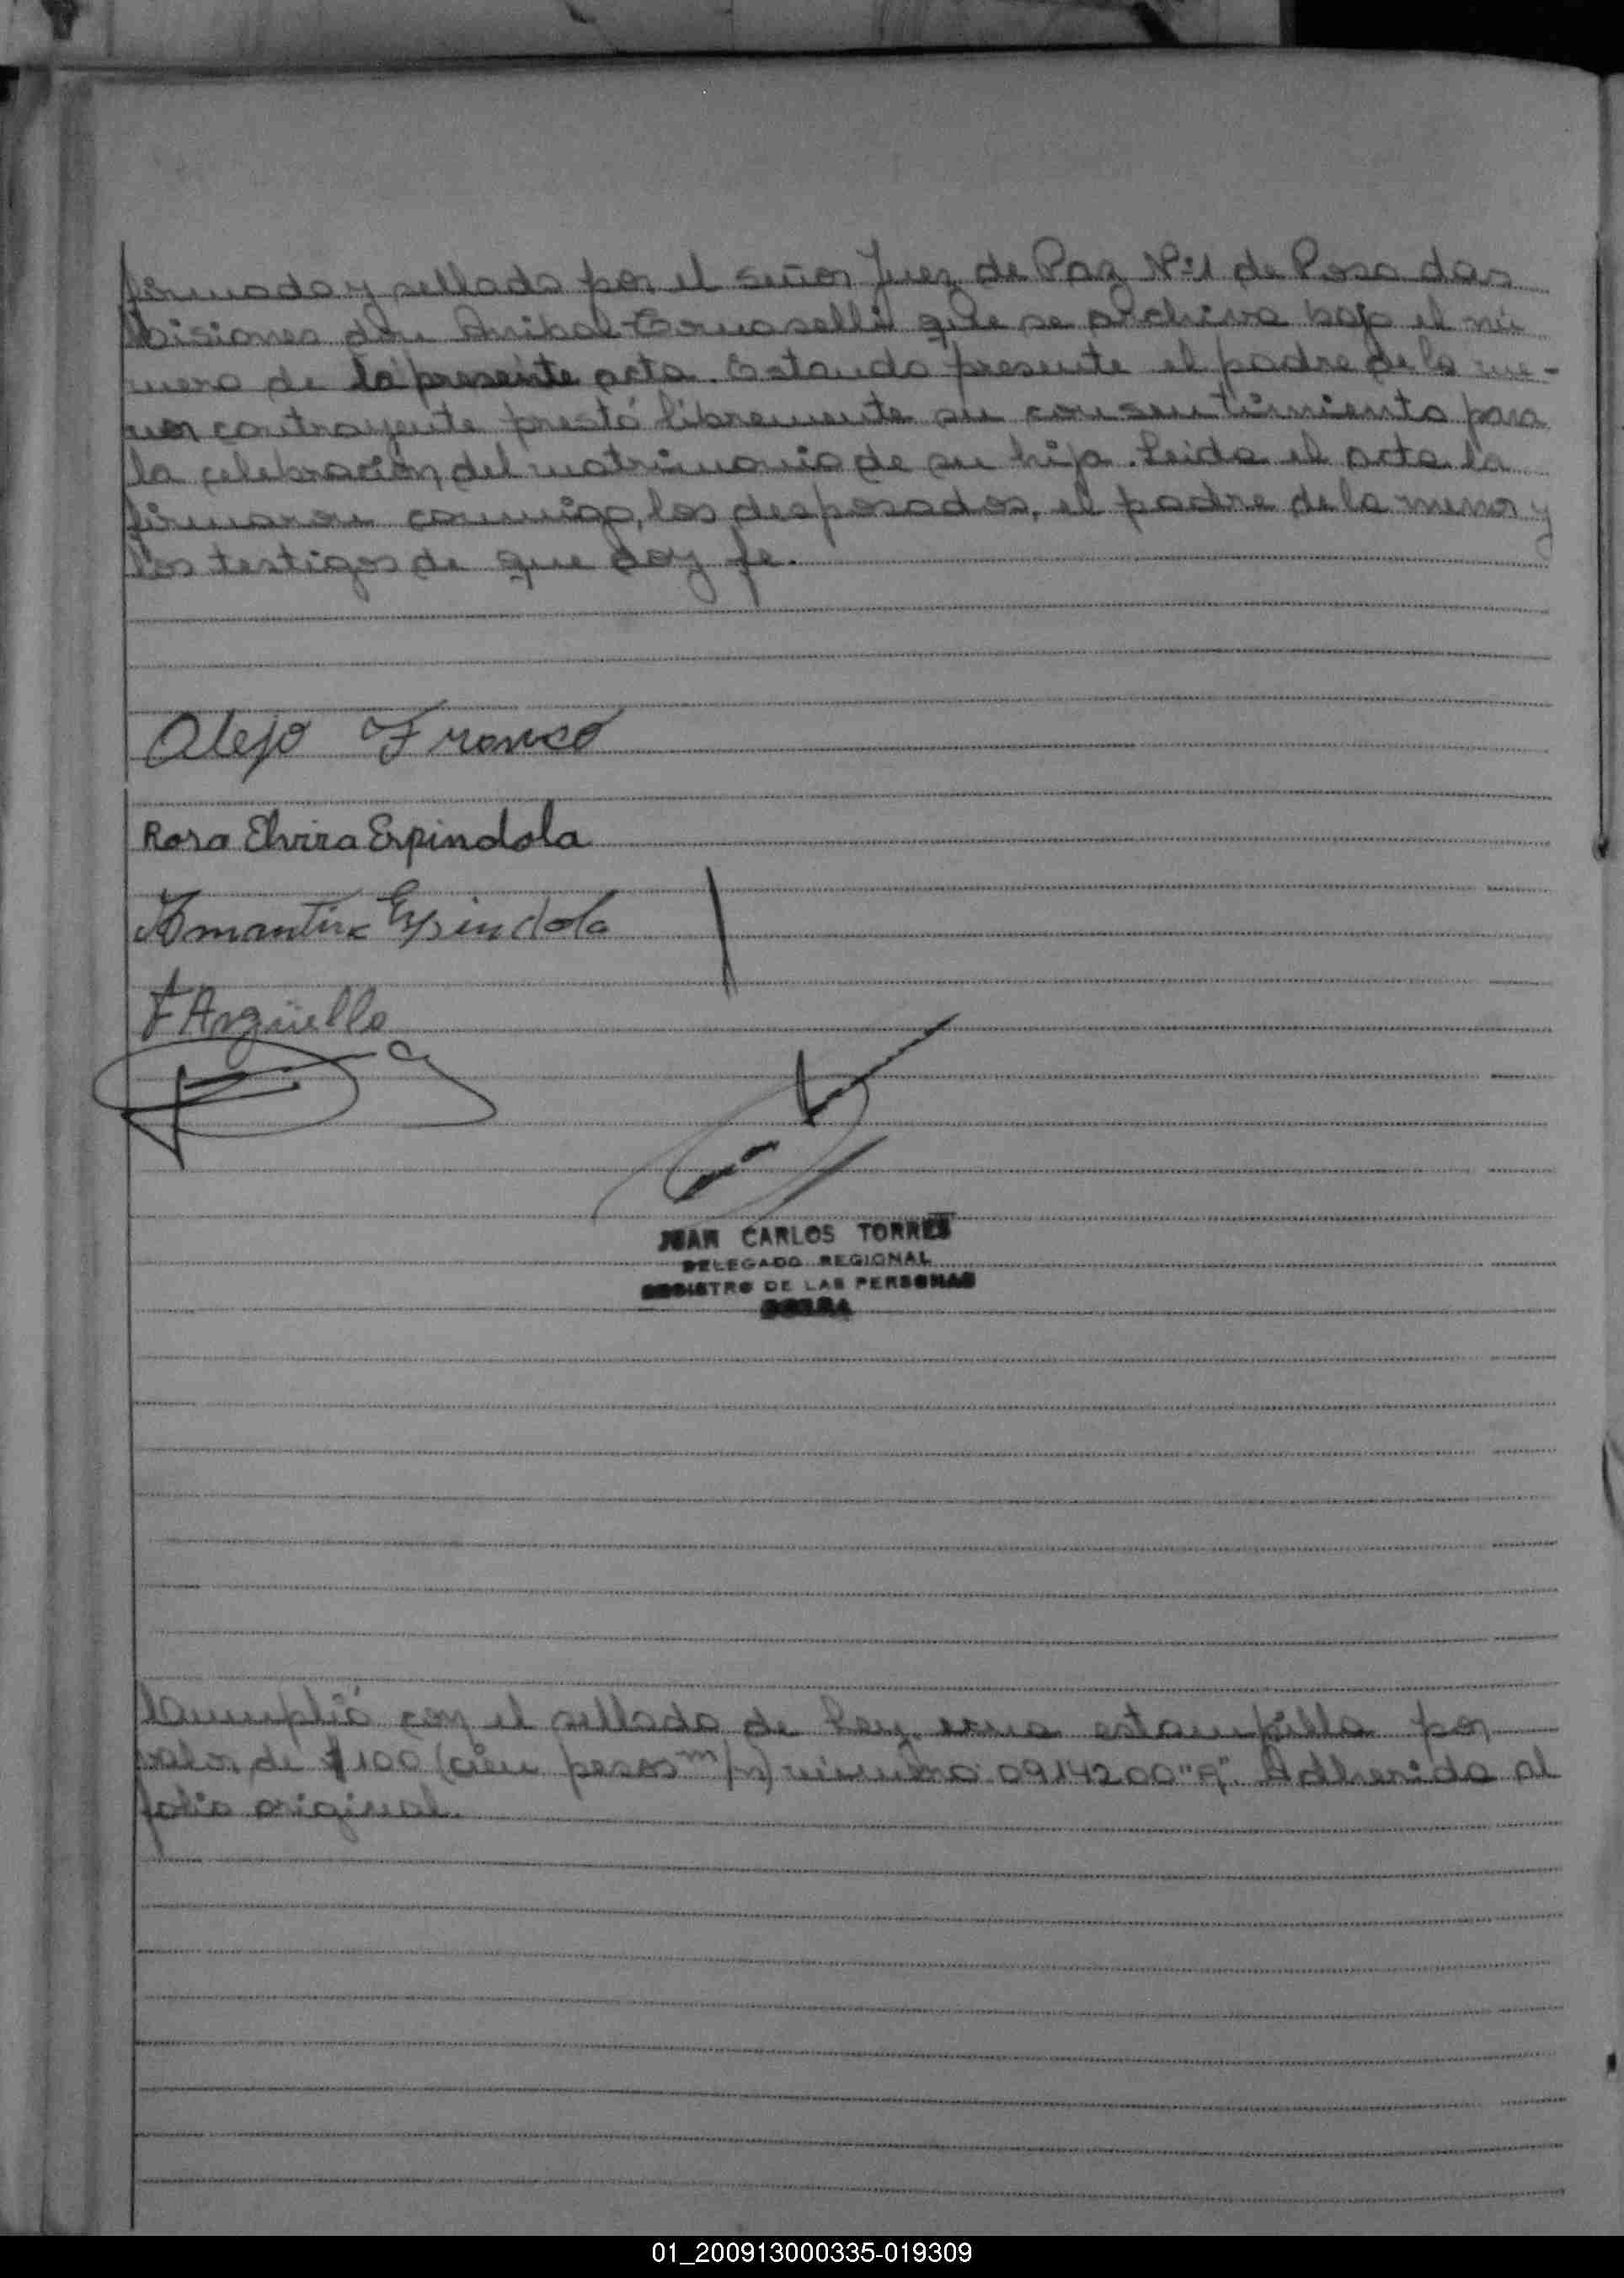 firmado y sellado por el señor Juez de Paz Nº1 de Posadas
Misiones don Anibal que se archiva bajo el nú
mero de la presente acta. Estando presente el padre de la me-
nor contrayente prestó libremente su consentimiento para
la celebración del matrimonio de su hija. Leida el acta la
firmaron conmigo, los desposados, el padre de la menor y
los testigos de que doy fe.
Alejo Franco
Rosa Elvira Espindola
Amantina Espindola
F Argüello
JUAN CARLOS TORRES
DELEGADO REGIONAL
REGISTRO DE LAS PERSONAS
Cumplió con el sellado de Ley una estampilla por
valor de $100 (cien pesos m/n) número 0914200 "A". Adherida al
folio original.
01_200913000335-019309